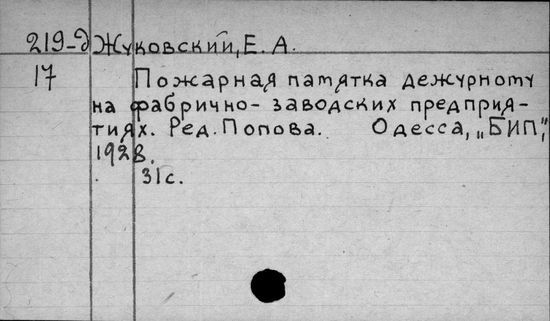 219-д Жуковский, Е. А.
17 Пожарная памятка дежурноту
на фабрично-заводских предприя-
тиях. Ред. Попова. Одесса, „БИП",
1928.
31 с.